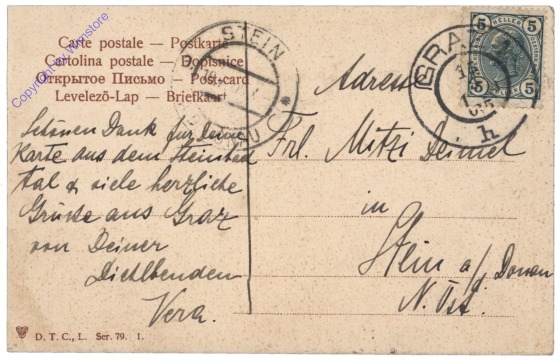 Carte postale — Postkarte
Cartolina postale — Dopisnice
Открытое Письмо — Post-card
Levelező-Lap — Briefkaart
STEIN
DONAU
GRAZ
h
5 HELLER 5
5 5
Copyright by Wernstore
Schönen Dank für Deine
Karte aus dem
tal & viele herzliche
Grüsse aus Graz
von Deiner
Dich liebenden
Vera.
Adresse
Frl. Mitzi Deimel
in
Stein a/ Donau
N. Öst.
D. T. C., L. Ser. 79. 1.